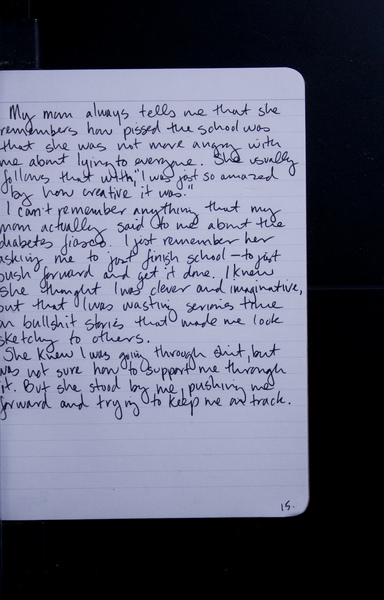 My mom always tells me that she
remembers how pissed the school was
that she was not more angry with
me about lying to everyone. She usually
follows that with, "I was just so amazed
by how creative it was."
I can't remember anything that my
mom actually said to me about the
diabetes fiasco. I just remember her
asking me to just finish school – to just
push forward and get it done. I knew
she thought I was clever and imaginative,
but that I was wasting serious time
on bullshit stories that made me look
sketchy to others.
She knew I was going through shit, but
was not sure how to support me through
it. But she stood by me, pushing me
forward and trying to keep me on track.
15.